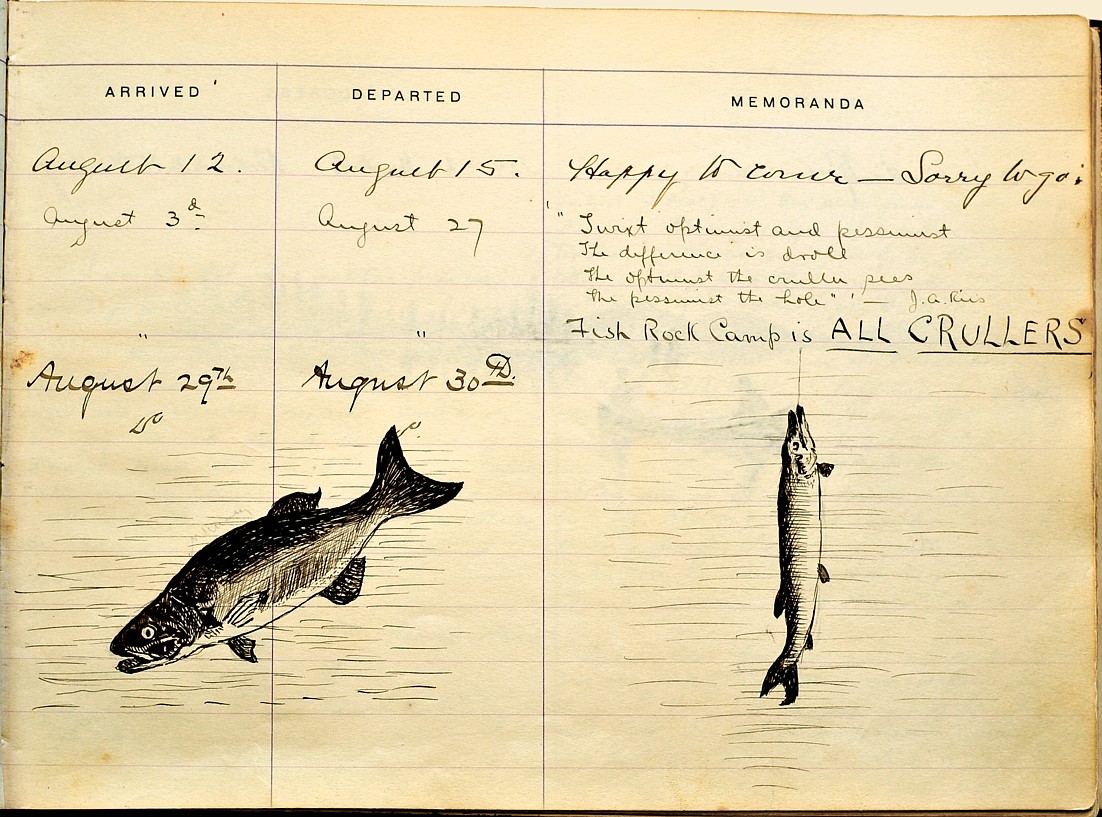 ARRIVED DEPARTED MEMORANDA
August 12. August 15. Happy to come — Sorry to go.
August 3d August 27 " 'Twixt optimist and pessimist
The difference is droll
The optimist the cruller sees
The pessimist the hole" ' — J.A. Riis
" " Fish Rock Camp is ALL CRULLERS
August 29th August 30th.
do do